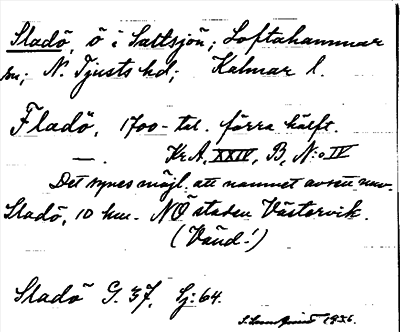 Sladö, ö i Saltsjön; Loftahammar
sn; N. Tjusts hd; Kalmar l.
Fladö, 1700-tal. förra hälft.
—. KrA, XXIV, B, N:o IV
Det synes möjl. att namnet avser nuv.
Sladö, 10 km. NÖ staden Västervik.
(Vänd!)
Sladö G. 37, Sj: 64.
1936.